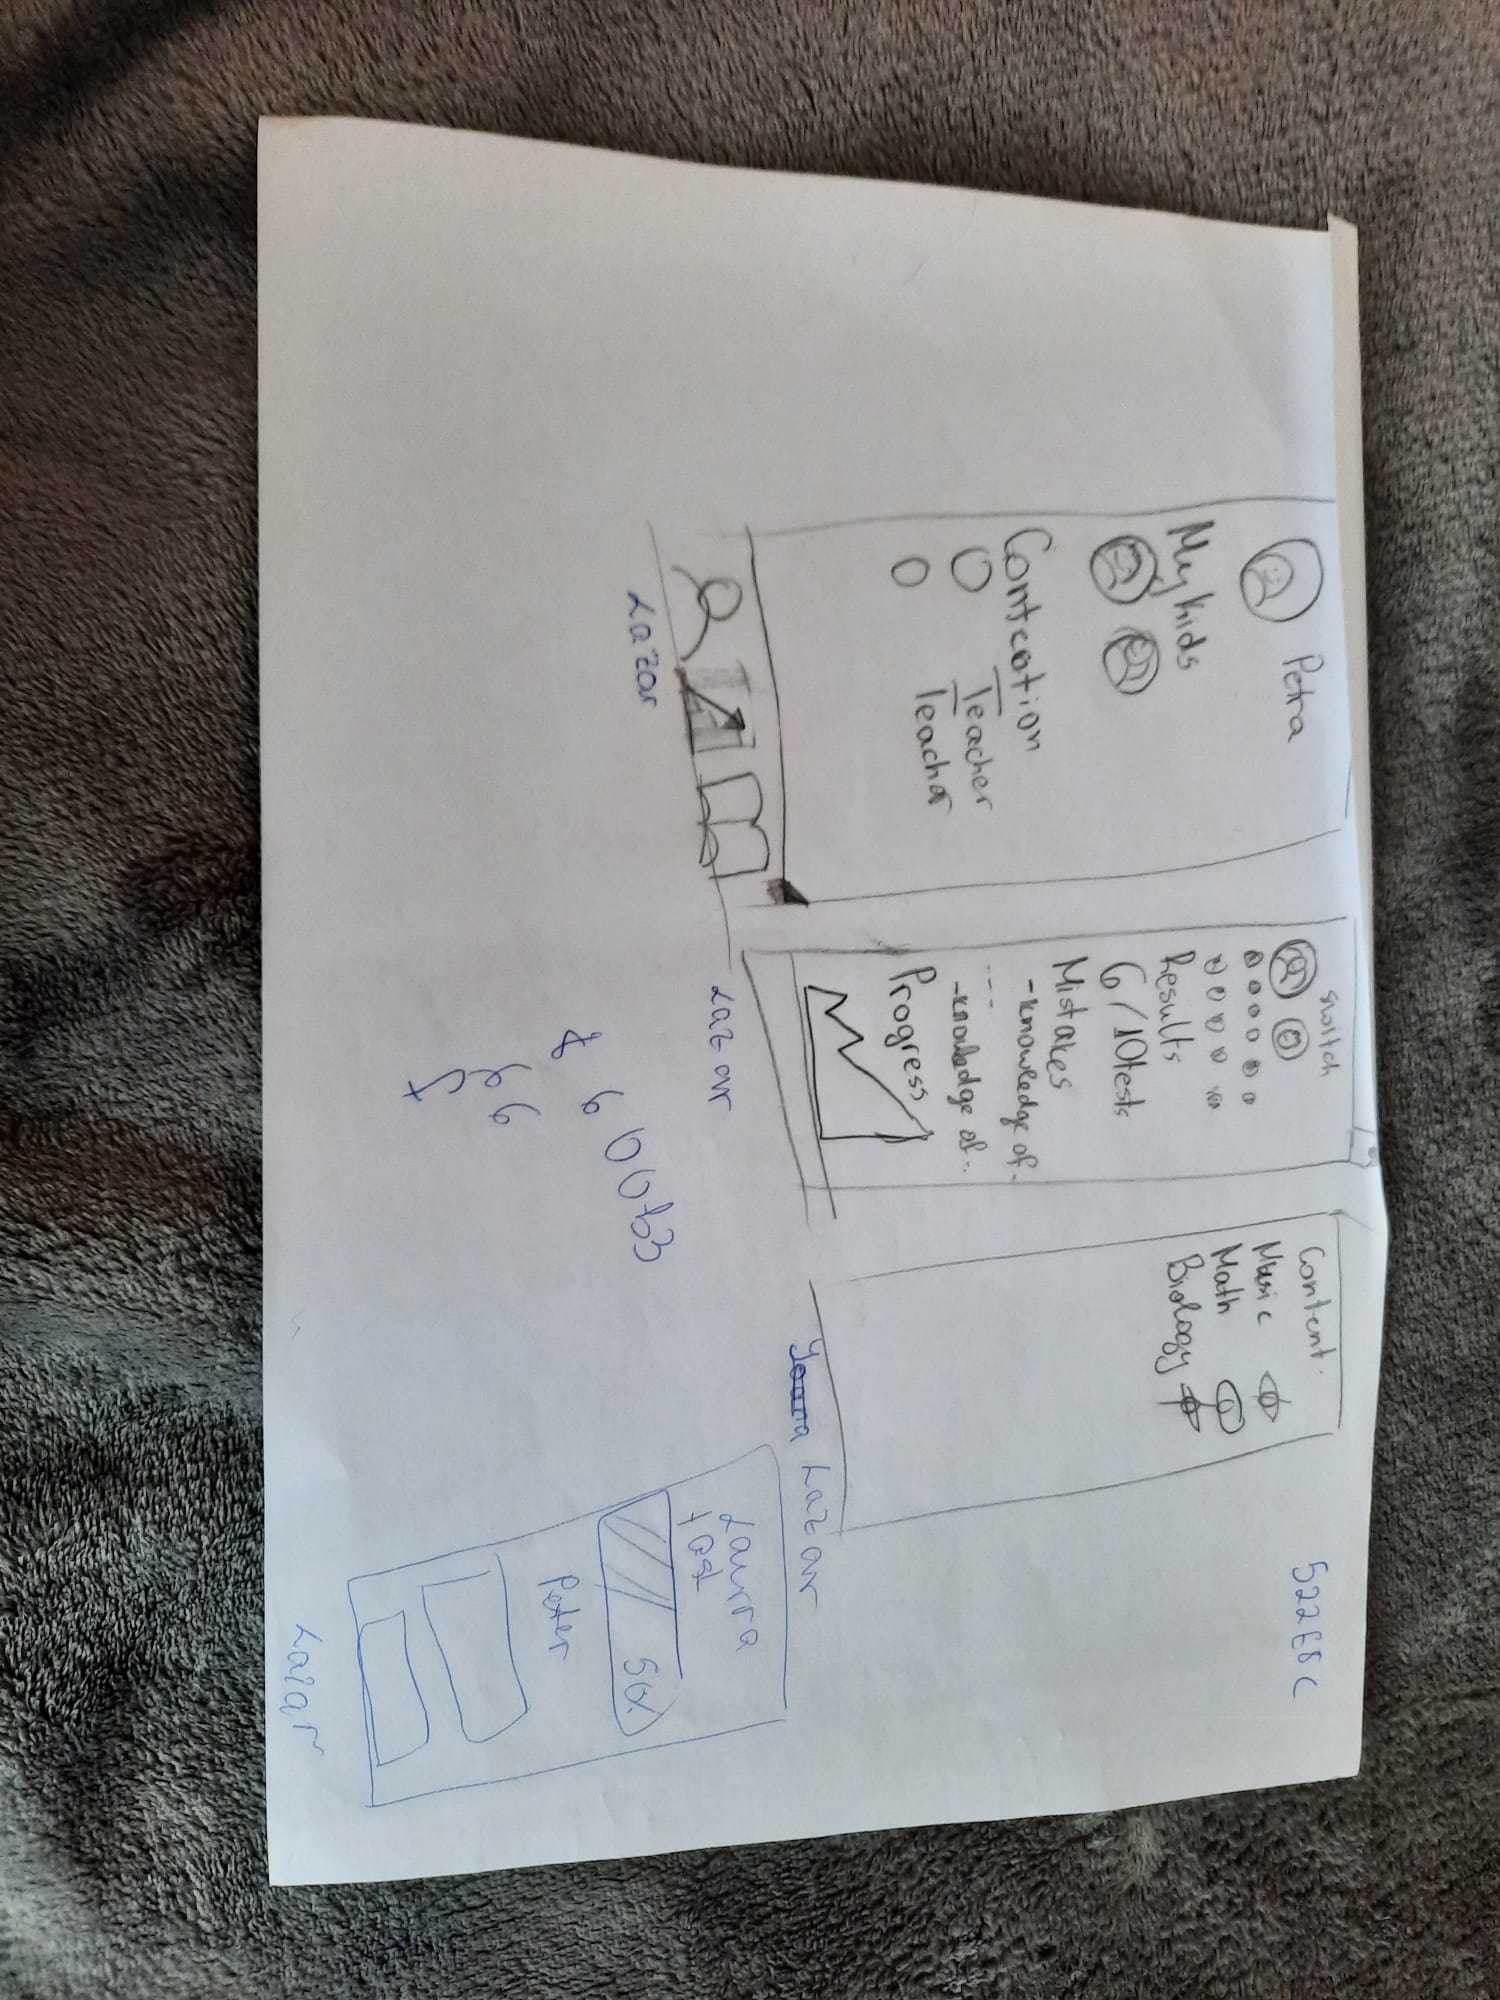 Petra
My kids
Contcation
Teacher
Teachar
Lazar
switch
Results
6/10tests
Mistakes
-knowledge of.
---
-knowledge of..
Progress
Lazar
Content.
Music
Math
Biology
Lazar
Laura
Peter
Lazar